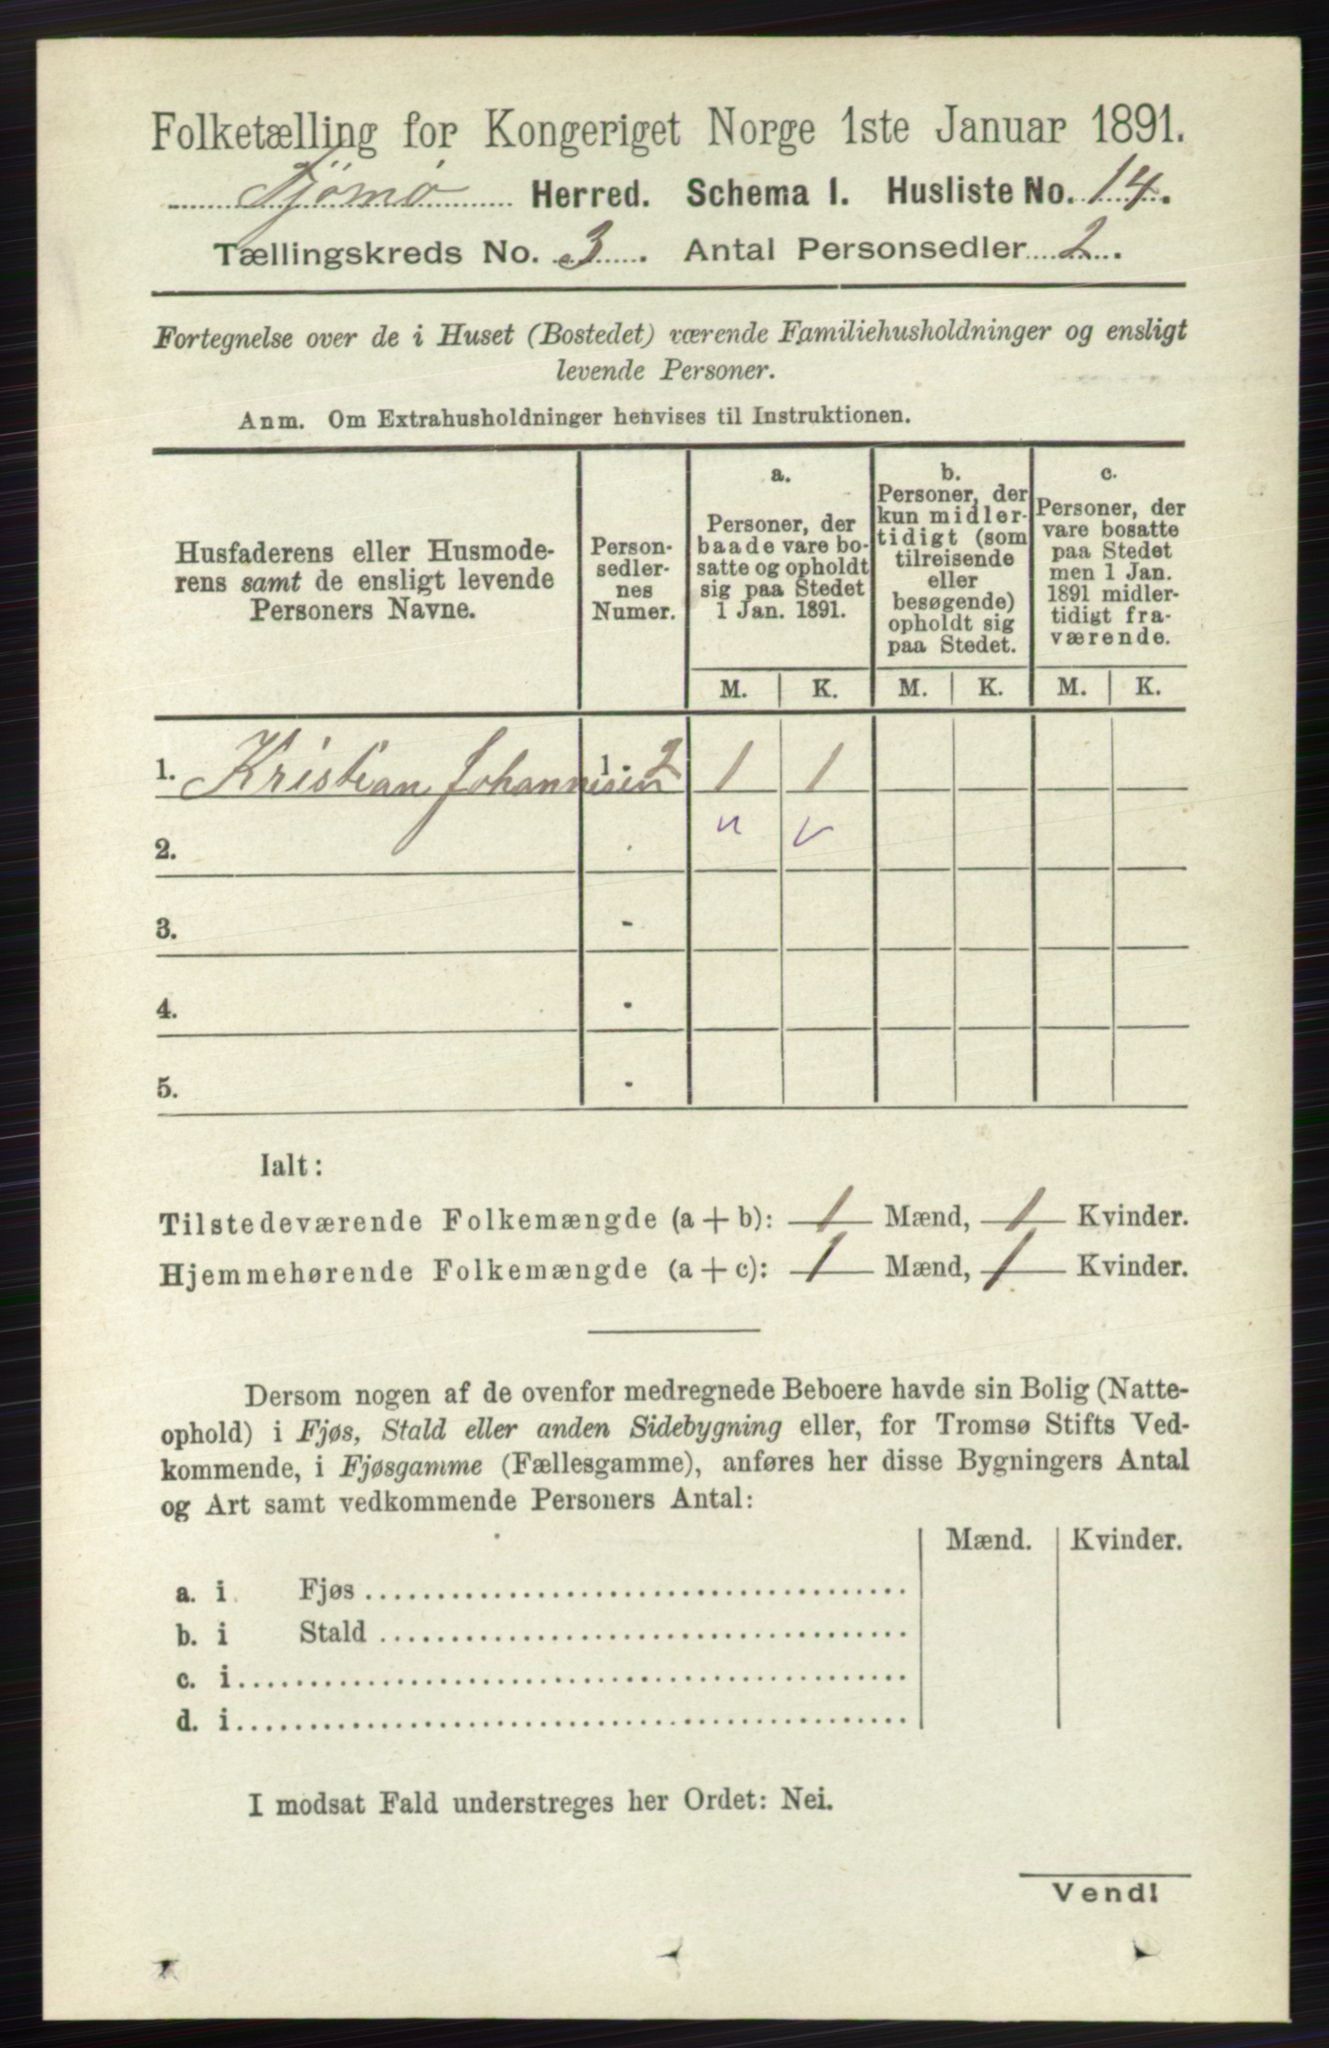 Folketælling for Kongeriget Norge 1ste Januar 1891.
Tjømø Herred. Schema 1. Husliste No. 14.
Tællingskreds No. 3. Antal Personsedler 2.
Fortegnelse over de i Huset (Bostedet) værende Familiehusholdninger og ensligt
levende Personer.
Anm. Om Extrahusholdninger henvises til Instruktionen.
Husfaderens eller Husmode-
rens samt de ensligt levende
Personers Navne.
Person-
sedler-
nes
Numer.
a.
Personer, der
baade vare bo-
satte og opholdt
sig paa Stedet
1 Jan. 1891.
b.
Personer, der
kun midler-
tidigt (som
tilreisende
eller
besøgende)
opholdt sig
paa Stedet.
c.
Personer, der
vare bosatte
paa Stedet
men 1 Jan.
1891 midler-
tidigt fra-
værende.
M. K. M. K. M. K.
1. Kristian Johannesen 1 - 2 1 1
2.
3. -
4. -
5. -
Ialt:
Tilstedeværende Folkemængde (a + b): 1 Mænd, 1 Kvinder.
Hjemmehørende Folkemængde (a + c): 1 Mænd, 1 Kvinder.
Dersom nogen af de ovenfor medregnede Beboere havde sin Bolig (Natte-
ophold) i Fjøs, Stald eller anden Sidebygning eller, for Tromsø Stifts Ved-
kommende, i Fjøsgamme (Fællesgamme), anføres her disse Bygningers Antal
og Art samt vedkommende Personers Antal:
Mænd. Kvinder.
a. i Fjøs
b. i Stald
c. i
d. i
I modsat Fald understreges her Ordet: Nei.
Vend!